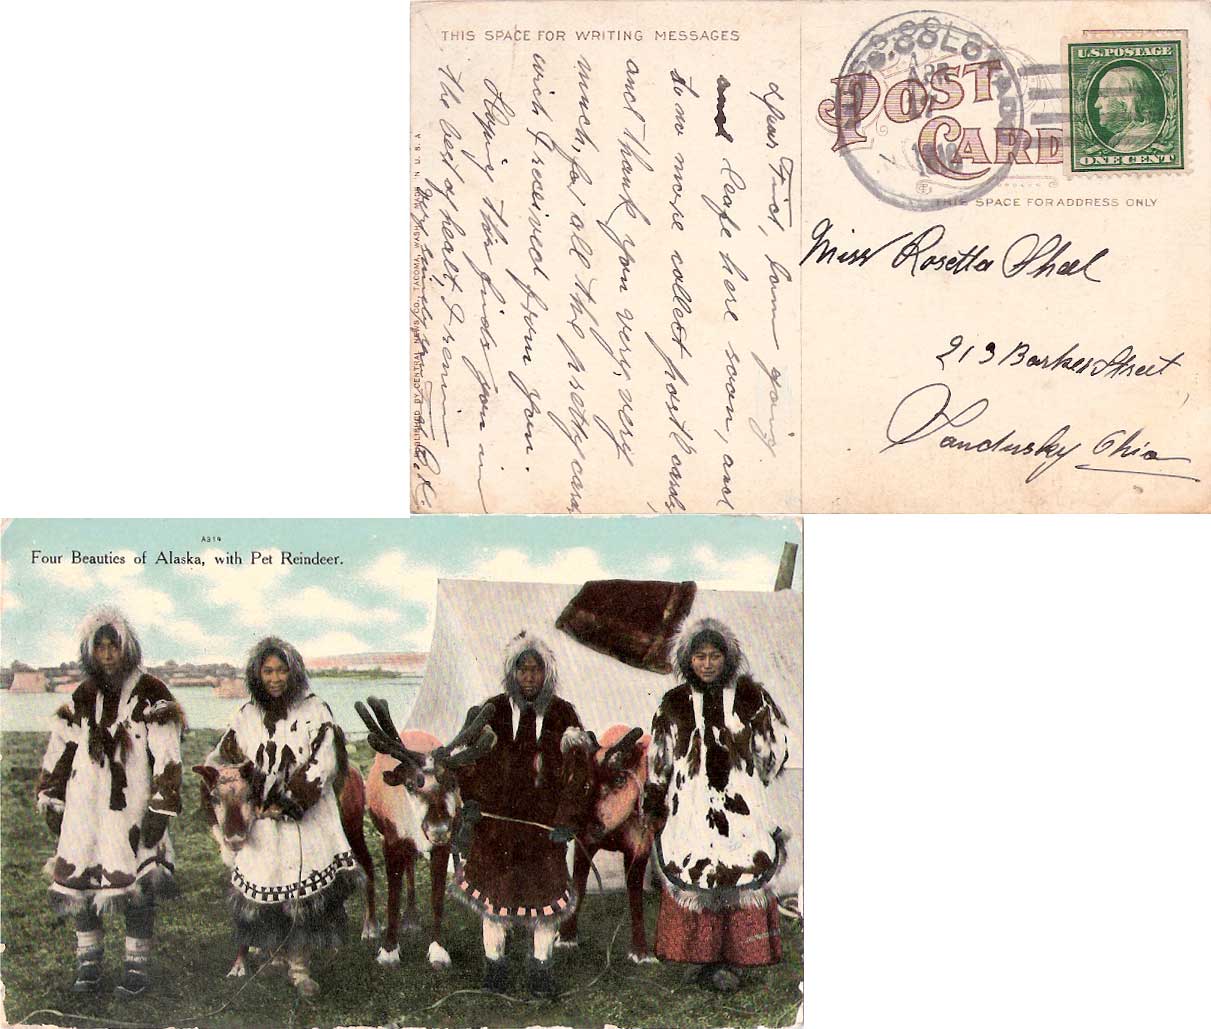 THIS SPACE FOR WRITING MESSAGES
Dear Friend, I am going
to no more collect post cards,
and leafe here soon, and
and thank you very, very
much, for all the pretty cards,
wich I received from you.
Hoping this finds you in
the best of healt, I remain
very
PUBLISHED BY CENTRAL NEWS CO., TACOMA, WASH. MADE IN U. S. A.
POST CARD
APR
U.S. POSTAGE
ONE CENT
THIS SPACE FOR ADDRESS ONLY
Miss Rosetta Shael
213 Barker Street
Sandusky Ohio
A314
Four Beauties of Alaska, with Pet Reindeer.